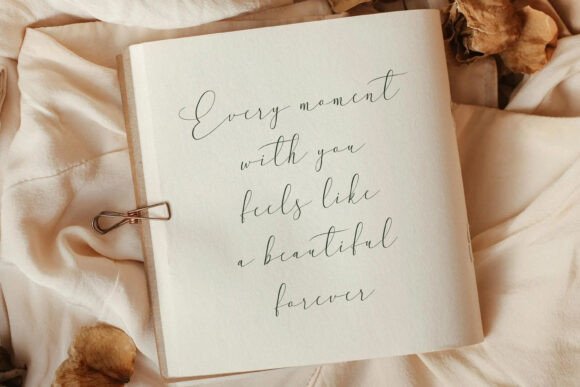 Every moment
with you
feels like
a beautiful
forever